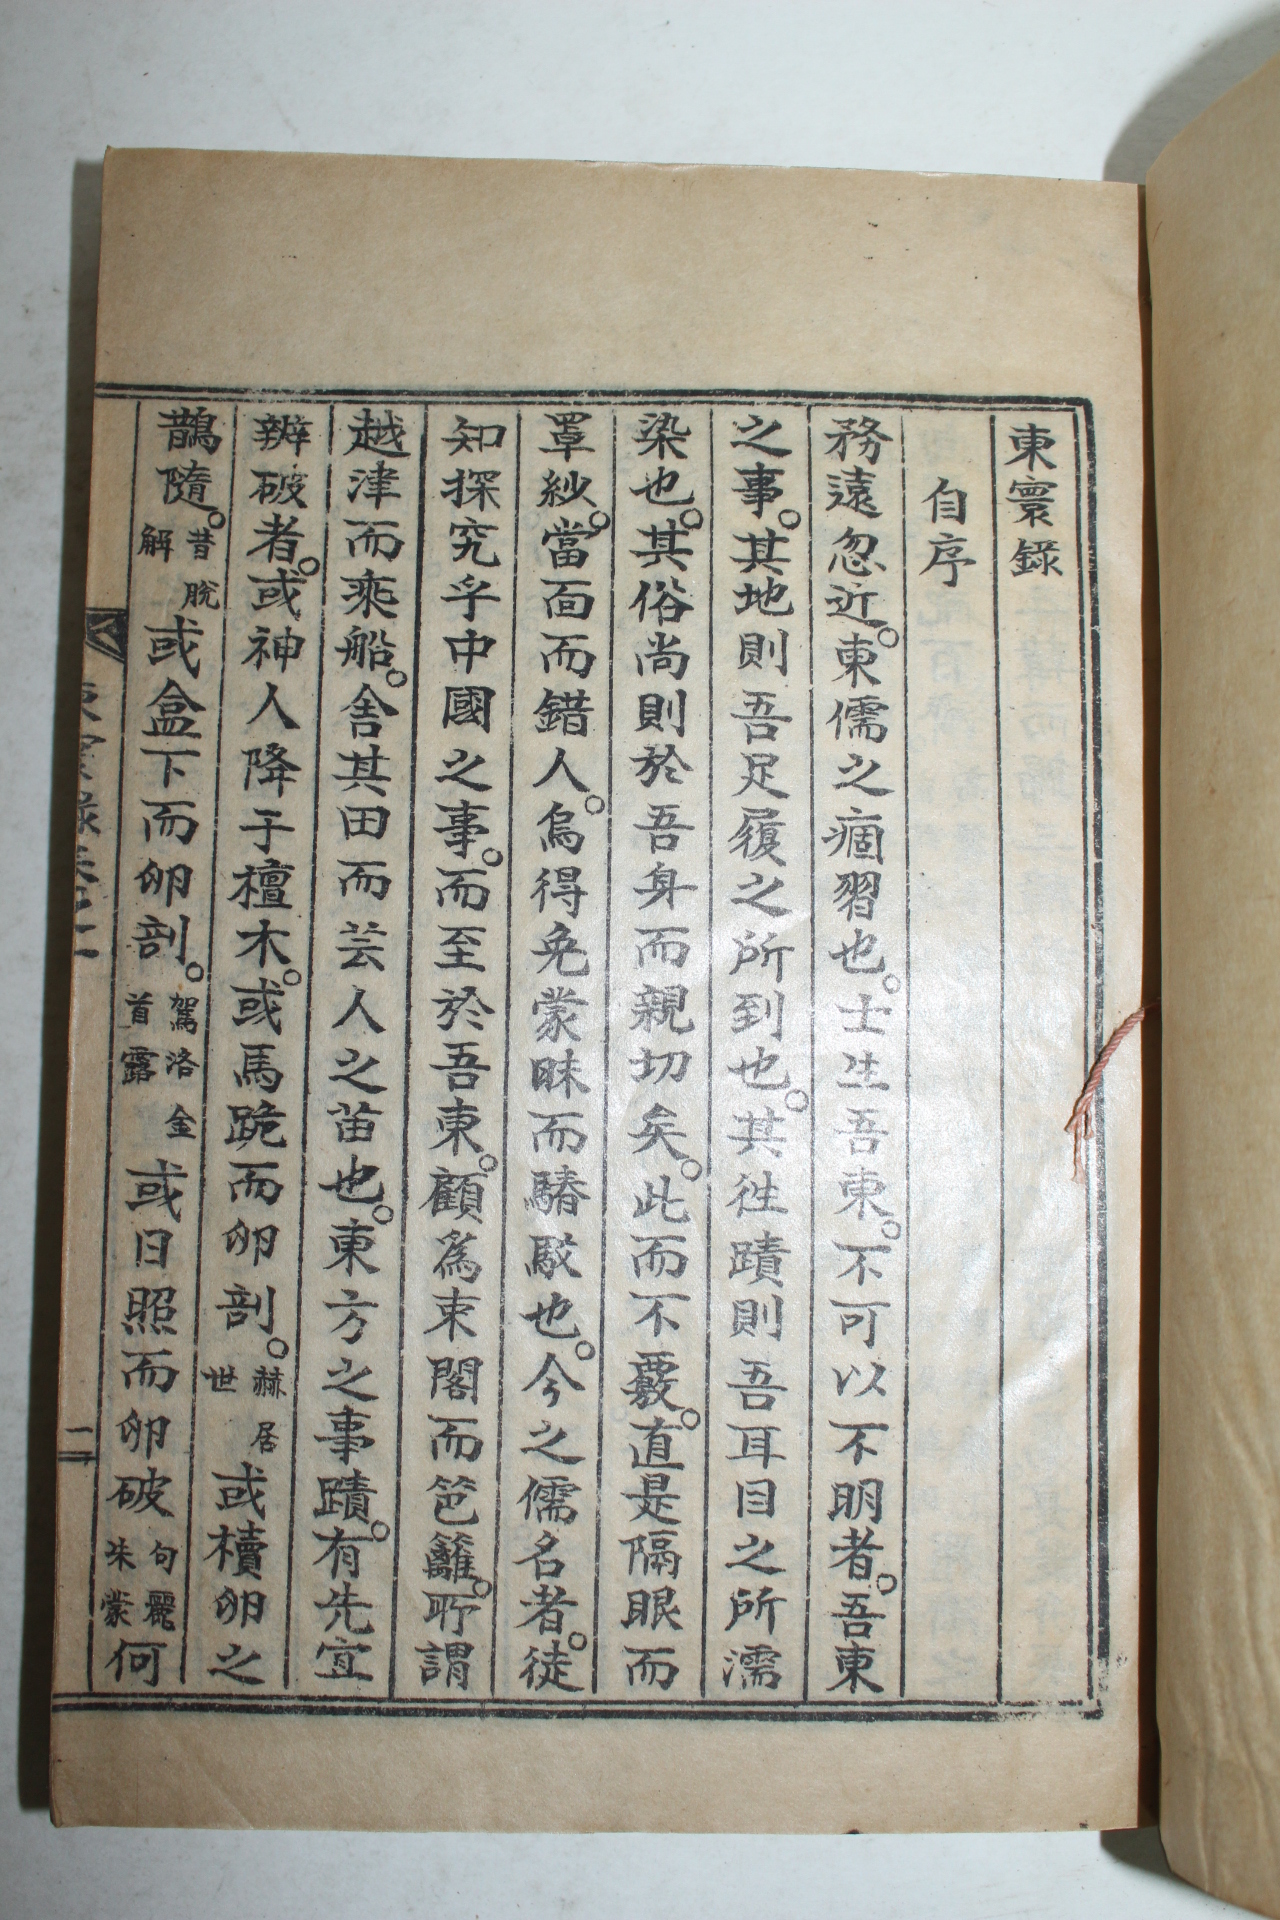 東寰錄
自序
務遠忽近。東儒之痼習也。士生吾東。不可以不明者。吾東
之事。其地則吾足履之所到也。其徃蹟則吾耳目之所濡
染也。其俗尚則於吾身而親切矣。此而不覈。直是隔眼而
罩紗。當面而錯人。烏得免蒙昧而䮞駁也。今之儒名者。徒
知探究乎中國之事。而至於吾東。顧爲束閣而笆籬。所謂
越津而乘船。舍其田而芸人之苗也。東方之事蹟。有先宜
辨破者。或神人降于檀木。或馬跪而卵剖。赫居世或櫝卵之
鵲隨。昔脫解或盒下而卵剖。駕洛金首露或日照而卵破句麗朱蒙何
東寰錄卷之一
一